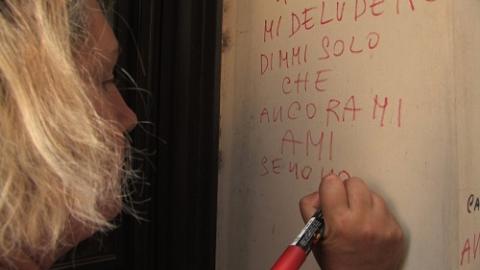 MI DELUDERE
DIMMI SOLO
CHE
ANCORA MI
AMI
SENO NO
CA
AV